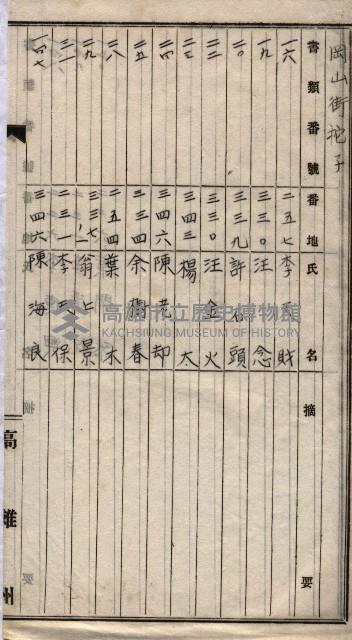 岡山街挖子
書類番號 番地 氏名 摘要
一六 二五七 李 財
一九 三三〇 汪 念
二〇 三三九 許石頭
二二 三三〇 汪金火
二三 三四三 楊 太
二四 三四六 陳老却
二五 三三四 余 春
二八 二五四 葉 木
二九 三三七ノ一 翁上景
三一 二三一 李天保
一四七 三四六 陳海浪
高雄州
高雄市立歷史博物館
KAOHSIUNG MUSEUM OF HISTORY